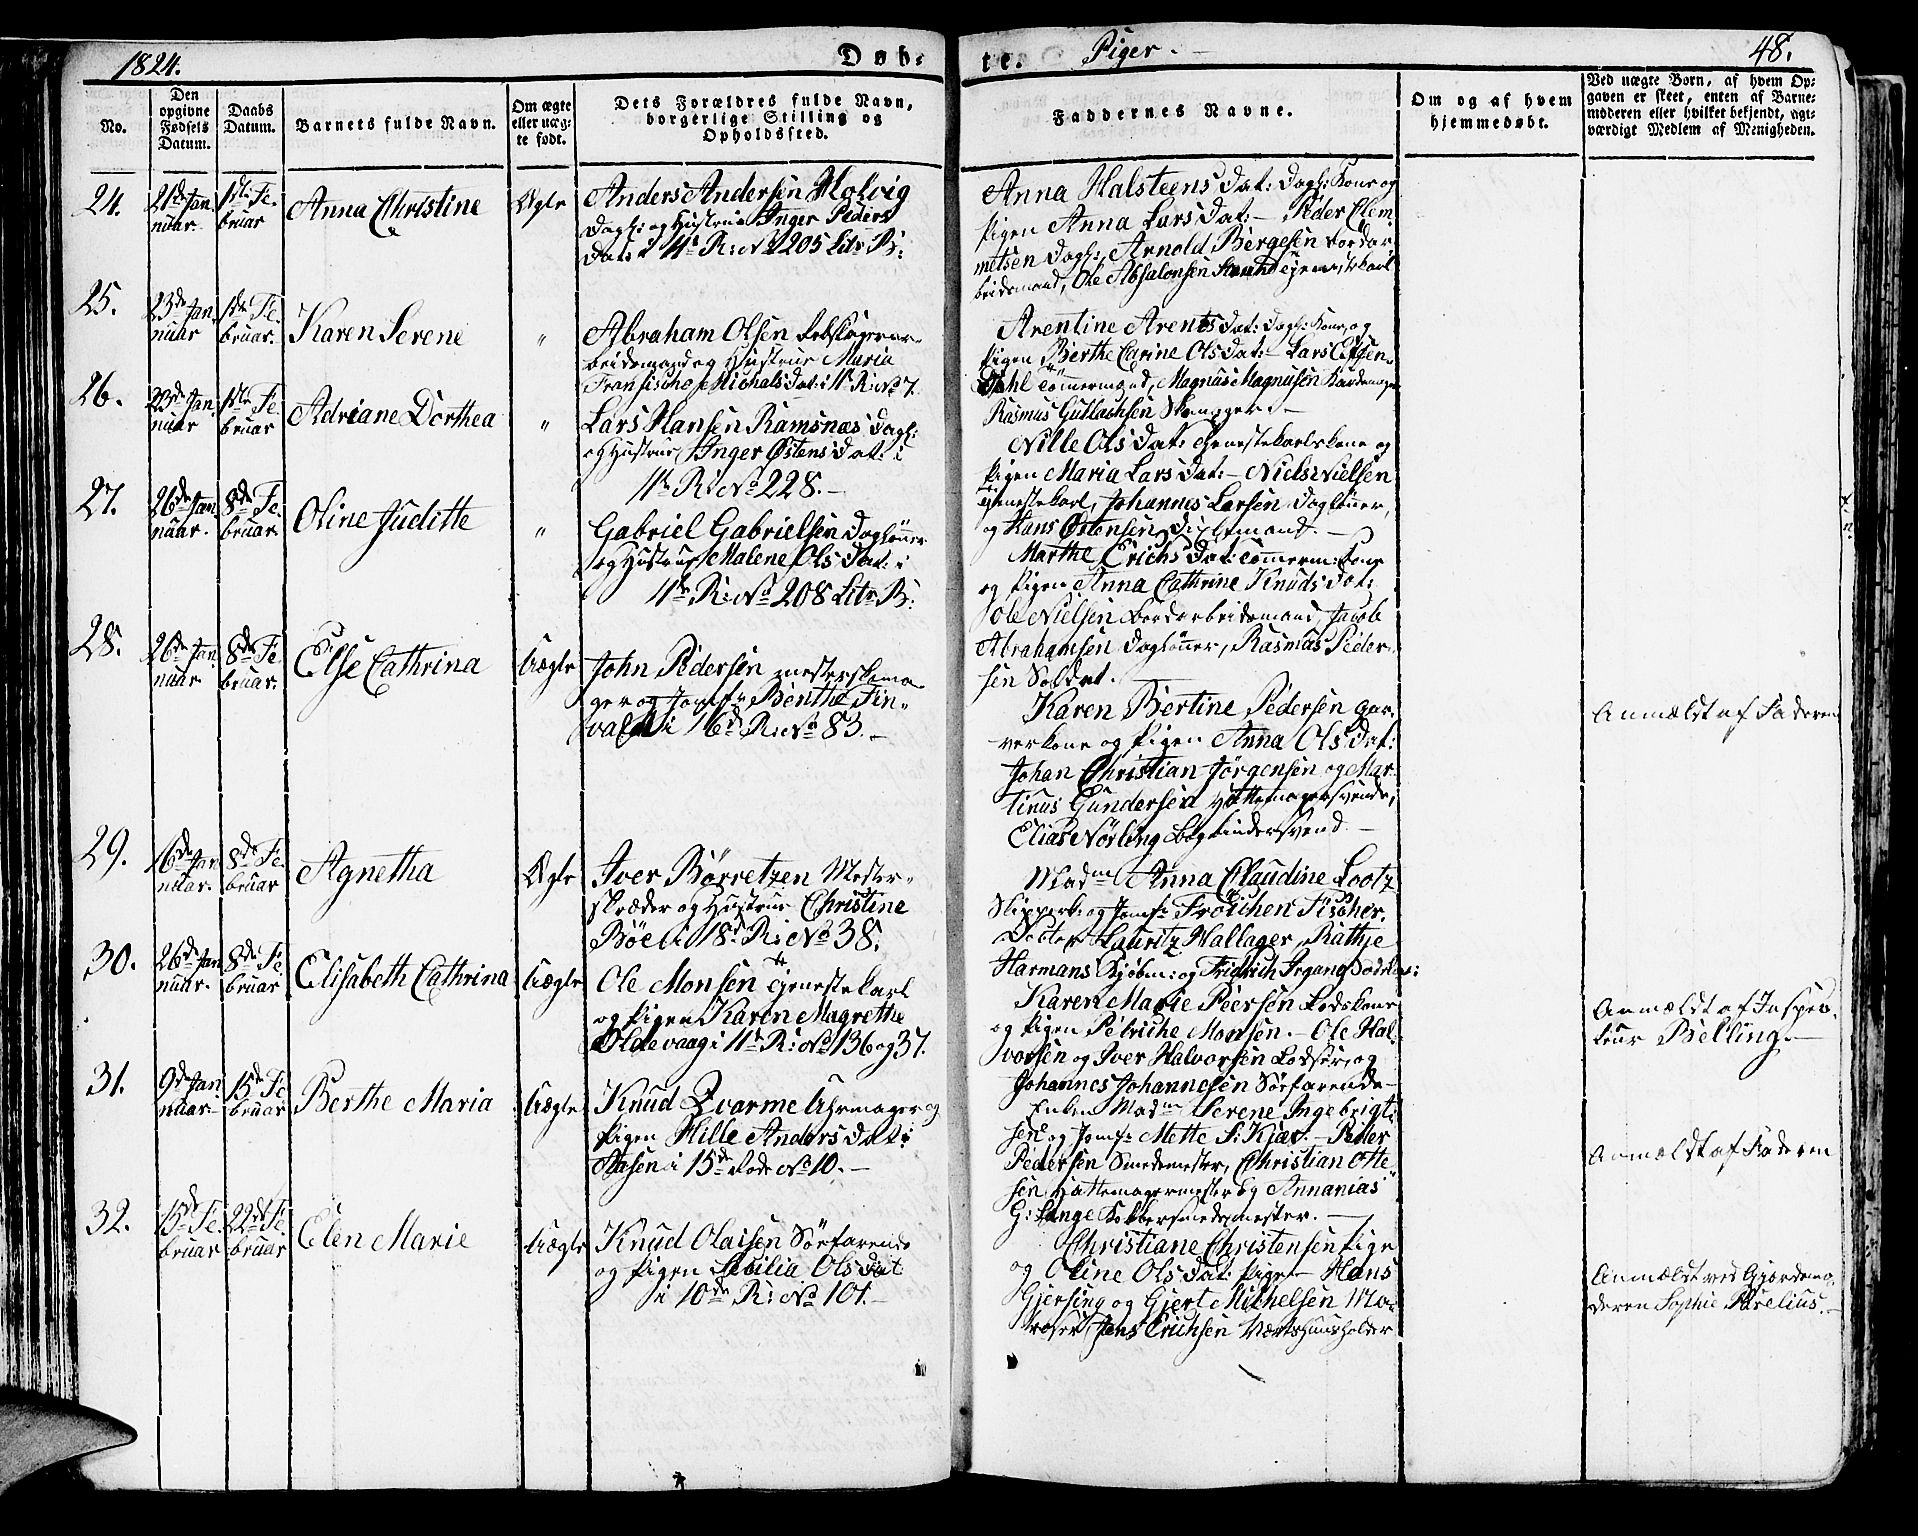 1824.
Døb-
te.
Piger.
48.
No.
Den opgivne Fødsels Datum.
Daabs Datum.
Barnets fulde Navn.
Om ægte eller uægte født.
Dets Forældres fulde Navn, borgerlige Stilling og Opholdssted.
Faddernes Navne.
Om og af hvem hjemmedøbt.
Ved uægte Børn, af hvem Op-
gaven er skeet, enten af Barne-
moderen eller hvilket bekjendt, agt-
værdigt Medlem af Menigheden.
24.
21de Jan
nuar.
1de Fe
bruar
Anna Christine
Ægte
Anders Andersen Holvig
Dagl: og Hustrue Inger Peders
Dat: i 11te R: No 205 Litr B:
Anna Halsteens Dat: Dagl: Kone og
Pigen Anna Lars Dat: - Peder Clem-
metsen Dagl: Arnold Bergesen Bordar-
beidsmand, Ole Absalonsen Tjenestekarl
25.
23de Jan
nuar
1de Fe
bruar.
Karen Serene
"
Abraham Olsen Rebslagerar-
beidsmand og Hustrue Maria
Fransischo Michals Dat: i 11te R: No 7.
Arentine Arents Dat: Dagl: Kone, og
Pigen Berthe Carine Ols Dat: - Lars Ellsen
Dahl Tömmermand, Magnus Magnusen
Rasmus Gullachsen
26.
23de Jan
nuar
1de Fe
bruar
Adriane Dorthea
"
Lars Hansen Ramsnæs Dagl:
og Hustrue Inger Østens Dat: i
11te R: No 228.-
Nille Ols Dat: Tjenestekarlskone og
Pigen Maria Lars Dat: - Niels Nielsen
Tjenestekarl, Johannes Larsen Daglönner,
og Hans Østensen
27.
26de Jan
nuar.
8de Fe
bruar.
Oline Juditte
"
Gabriel Gabrielsen Daglönner
og Hustrue Malene Ols Dat: i
11te R: No 208 Litr B:
Marthe Erichs Dat: Tömmerm: Kone
og Pigen Anna Cathrine Knuds Dat:
Ole Nielsen Bordarbeidsmand, Jacob
Abrahamsen Daglönner, Rasmus Peder-
sen Soldat.
28.
26de Jan
nuar
8de Fe
bruar.
Else Cathrina
Uægte
John Pedersen Mesterskoma-
ger og Jomfr Benthe Fin-
vald i 16de R: No 83.-
Karen Bertine Pedersen Gar-
verkone og Pigen Anna Ols Dat:
Johan Christian Jørgensen og Mar-
tinus Gundersen Hattemagersvende,
Elias Nørling Bogbindersvend.-
Anmældt af Faderen
29.
16de Jan
nuar.
8de Fe
bruar
Agnetha
Ægte
Iver Børretzen Mester-
skræder og Hustrue Christine
Böe i 18de R: No 38.
Madme Anna Claudine Lootz
Skipperk: og Jomfr Fröichen Fischer.
Docter Lauritz Hallager, Rathje
Harmans Kjøbm: og Fridrich Irgang
30.
26de Jan
nuar.
8de Fe
bruar
Elisabeth Cathrina
Uægte
Ole Monsen Tjenestekarl
og Pigen Karen Magrethe
Oldevaag i 11te R: No 136 og 37.
Karen Marie Peersen Lodskone
og Pigen Petriche Monsen.- Ole Hal-
vorsen og Iver Halvorsen Lodser, og
Johannes Johannesen Sörfarende-
Anmældt af Inspec-
teur Bølling.-
31.
9de Jan
nuar-
15de Fe
bruar
Berthe Maria
Uægte
Knud Qvarme Uhrmager og
Pigen Hille Anders Dat:
Aasen i 15de Rode No 10.-
Enken Madme Serene Ingebrigt-
sen og Jomfr Mette S: Kjær.- Peder
Pedersen Smedemester, Christian Otte-
sen Hattemagermester og Annanias
G: Lange Kobbersmedemester.-
Anmældt af Faderen
32.
15de Fe
bruar
22de Fe
bruar
Elen Marie
Uægte
Knud Olaisen Sörfarende
og Pigen Sicilia Ols Dat
i 10de R: No 101.-
Christiane Christensen Pige
og Oline Ols Dat: Pige - Hans
Gjersing og Gjert Michelsen Ma-
troser, Jens Erichsen Værtshuusholder
Anmældt ved Gjordemo-
deren Sophie Parelius.-